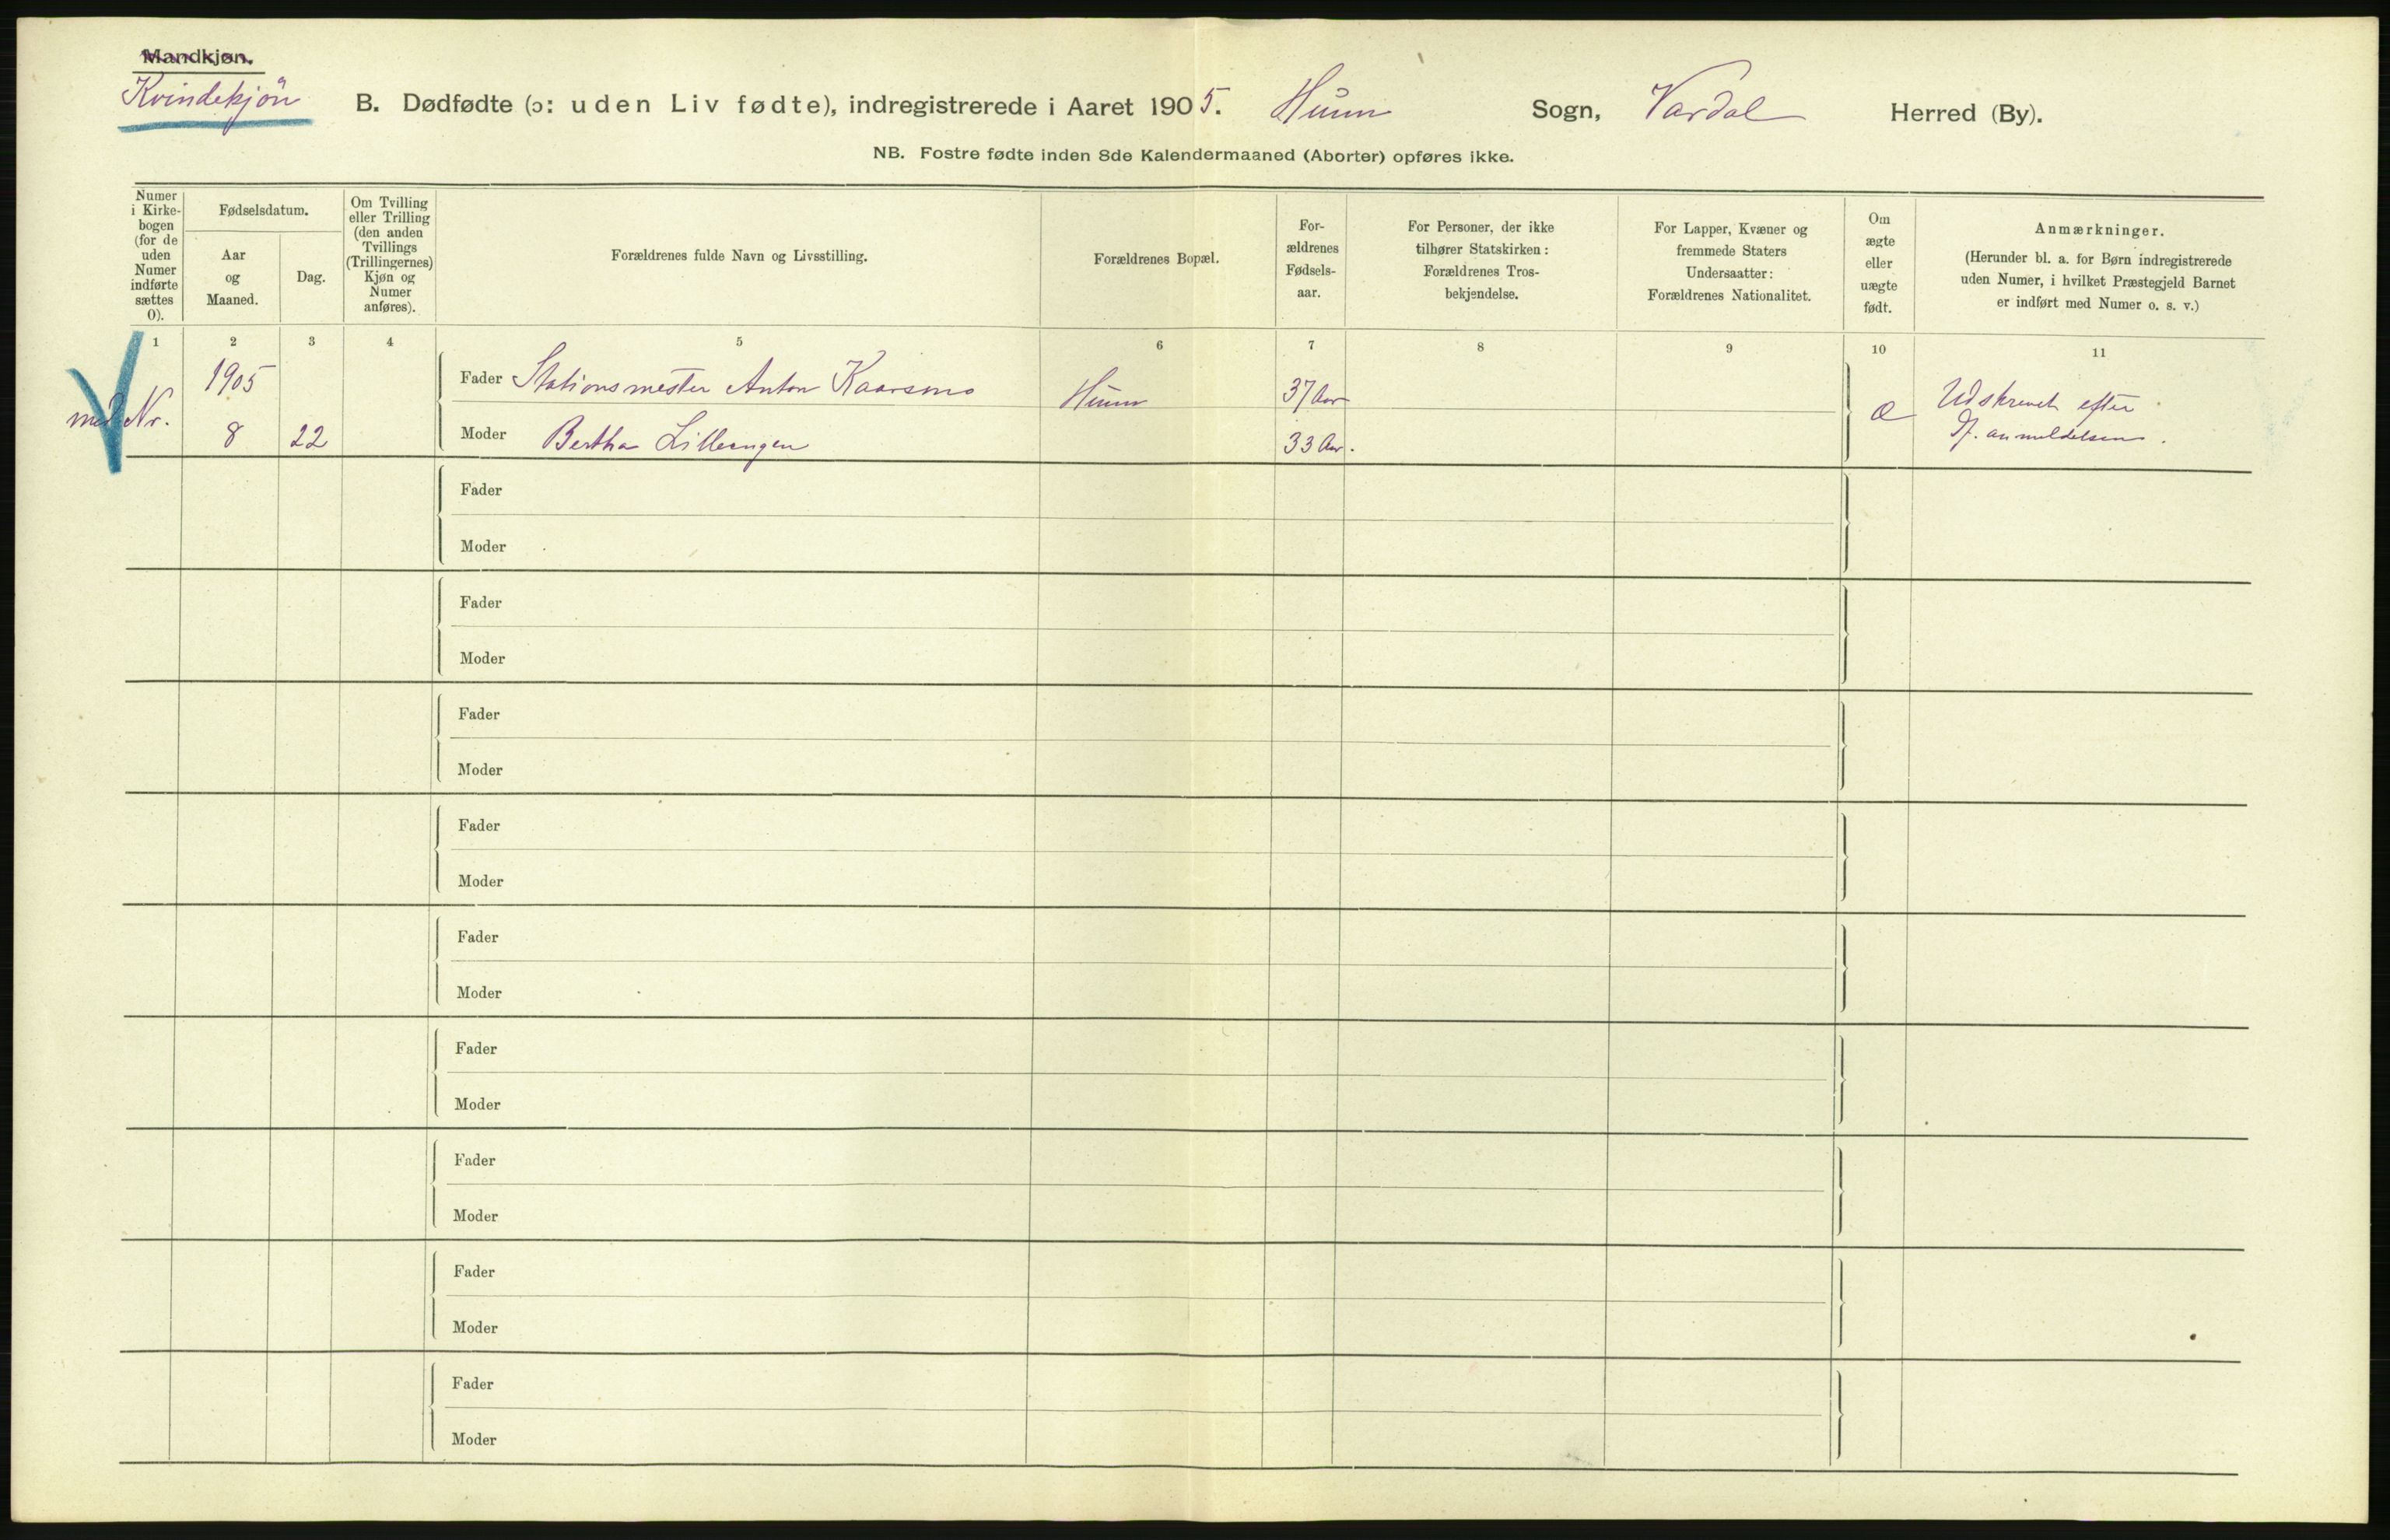 Mandkjøn.
Kvindekjön
B. Dødfødte (ɔ: uden Liv fødte), indregistrerede i Aaret 1905. Hunn Sogn, Vardal Herred (By).
NB. Fostre fødte inden 8de Kalendermaaned (Aborter) opføres ikke.
Numer i Kirkebogen (for de uden Numer indførte sættes 0).
Fødselsdatum.
Aar og Maaned.
Dag.
Om Tvilling eller Trilling (den anden Tvillings (Trillingernes) Kjøn og Numer anføres).
Forældrenes fulde Navn og Livsstilling.
Forældrenes Bopæl.
Forældrenes Fødselsaar.
For Personer, der ikke tilhører Statskirken: Forældrenes Trosbekjendelse.
For Lapper, Kvæner og fremmede Staters Undersaatter: Forældrenes Nationalitet.
Om ægte eller uægte født.
Anmærkninger.
(Herunder bl. a. for Børn indregistrerede uden Numer, i hvilket Præstegjeld Barnet er indført med Numer o. s. v.)
1 2 3 4 5 6 7 8 9 10 11
1905 Fader Stationsmester Anton Kaarsmo Hunn 37 Aar æ Udskrevet efter
Nr. 8 22 Moder Bertha Lilleengen 33 Aar. anmeldelsen.
Fader
Moder
Fader
Moder
Fader
Moder
Fader
Moder
Fader
Moder
Fader
Moder
Fader
Moder
Fader
Moder
Fader
Moder